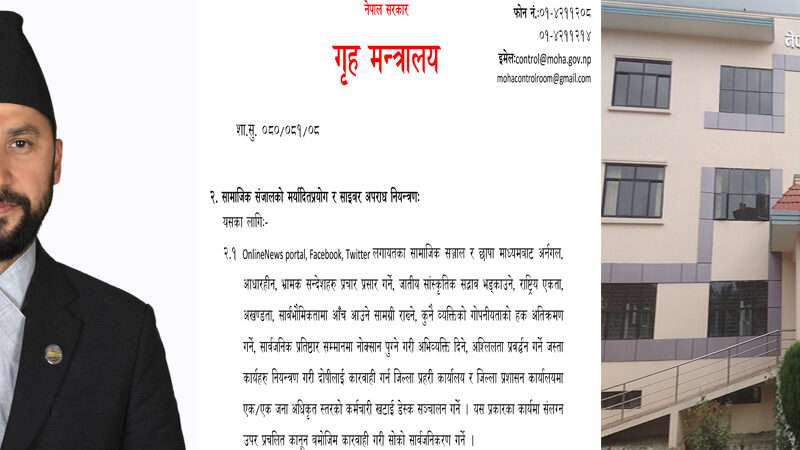 नेपाल सरकार
गृह मन्त्रालय
फोन नं.:०१-४२११२०८
०१-४२११२१४
इमेल:control@moha.gov.np
mohacontrolroom@gmail.com
शा.सु. ०८०/०८१/०८
२. सामाजिक संजालको मर्यादितप्रयोग र साइबर अपराध नियन्त्रणः
यसका लागिः-
२.१ OnlineNews portal, Facebook, Twitter लगायतका सामाजिक सञ्जाल र छापा माध्यमबाट अर्नगल,
आधारहीन, भ्रामक सन्देशहरु प्रचार प्रसार गर्ने, जातीय सांस्कृतिक सद्भाव भड्काउने, राष्ट्रिय एकता,
अखण्डता, सार्वभौमिकतामा आँच आउने सामग्री राख्ने, कुनै व्यक्तिको गोपनीयताको हक अतिक्रमण
गर्ने, सार्वजनिक प्रतिष्ठार सम्मानमा नोक्सान पुग्ने गरी अभिव्यक्ति दिने, अश्लिलता प्रवर्द्धन गर्ने जस्ता
कार्यहरु नियन्त्रण गरी दोषीलाई कारवाही गर्न जिल्ला प्रहरी कार्यालय र जिल्ला प्रशासन कार्यालयमा
एक/एक जना अधिकृत स्तरको कर्मचारी खटाई डेस्क सञ्चालन गर्ने । यस प्रकारका कार्यमा संलग्न
उपर प्रचलित कानून बमोजिम कारवाही गरी सोको सार्वजनिकरण गर्ने ।